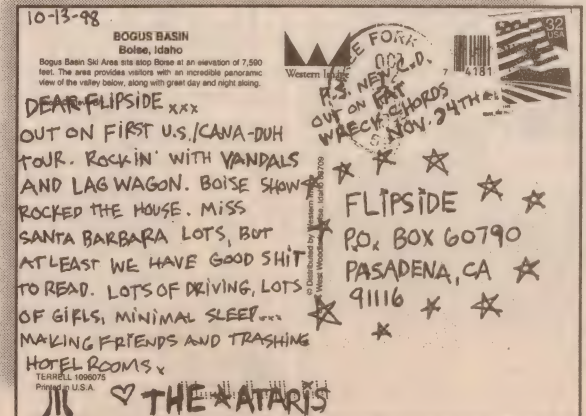 10-13-98
BOGUS BASIN
Boise, Idaho
Bogus Basin Ski Area sits atop Boise at an elevation of 7,590
feet. The area provides visitors with an incredible panoramic
view of the valley below, along with great day and night skiing.
DEAR FLIPSIDE xxx
OUT ON FIRST U.S./CANA-DUH
TOUR. ROCKIN' WITH VANDALS
AND LAGWAGON. BOISE SHOW
ROCKED THE HOUSE. MISS
SANTA BARBARA LOTS, BUT
ATLEAST WE HAVE GOOD SHIT
TO READ. LOTS OF DRIVING, LOTS
OF GIRLS, MINIMAL SLEEP...
MAKING FRIENDS AND TRASHING
HOTEL ROOMS.
TERRELL 1096075
Printed in U.S.A.
♡ THE ATARIS
Western
© Distributed by Western
Boise, Idaho 83709
FORK
OCT
7
4181
32
USA
P.S. NEW C.D.
OUT ON FAT
WRECK CHORDS
NOV. 24TH
FLIPSIDE
P.O. BOX 60790
PASADENA, CA
91116